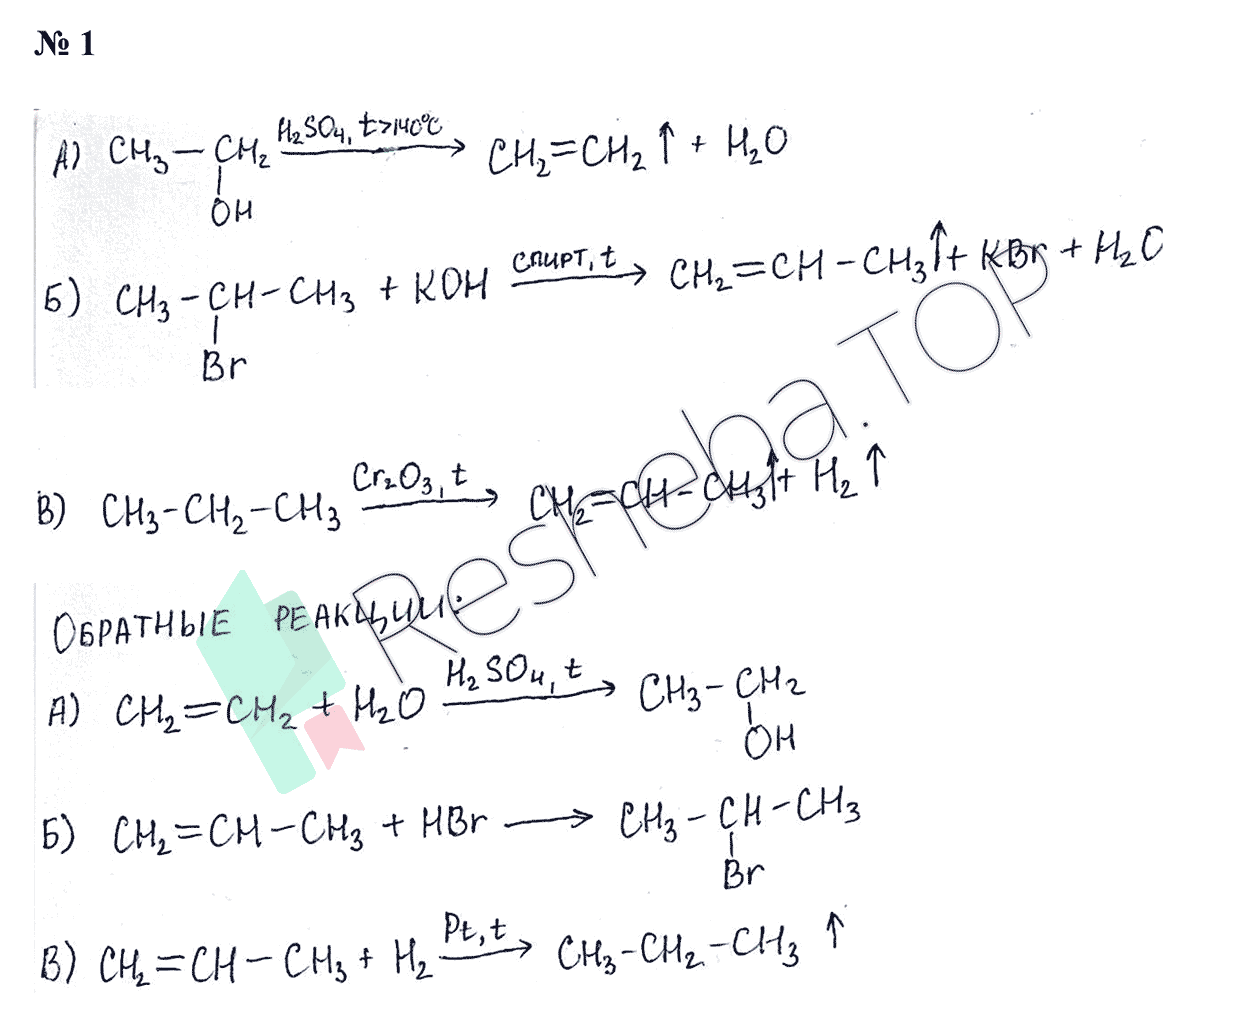 № 1
А) CH₃ — CH₂ H₂SO₄, t>140°C → CH₂=CH₂ ↑ + H₂O
OH
Б) CH₃ – CH – CH₃ + KOH спирт, t → CH₂=CH – CH₃↑ + KBr + H₂O
Br
В) CH₃–CH₂–CH₃ Cr₂O₃, t → CH₂=CH – CH₃↑ + H₂ ↑
Обратные реакции:
А) CH₂=CH₂ + H₂O H₂SO₄, t → CH₃ – CH₂
OH
Б) CH₂=CH – CH₃ + HBr → CH₃ – CH – CH₃
Br
В) CH₂=CH – CH₃ + H₂ Pt, t → CH₃–CH₂–CH₃ ↑
Resheba.TOP